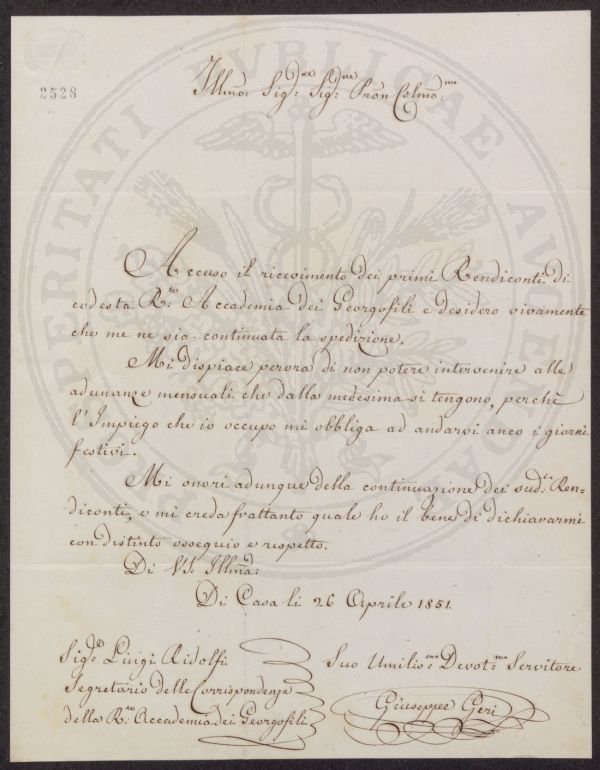 2528
Illmo: Sigre: Sigre: Pron Colmo:mo
Accuso il ricevimento dei primi Rendiconti di
codesta R:le Accademia dei Georgofili e desidero vivamente
che me ne sia continuata la spedizione.
Mi dispiace perora di non potere intervenire alle
adunanze mensuali che dalla medesima si tengono, perchè
l'Impiego che io occupo mi obbliga ad andarvi anco i giorni
festivi.
Mi onori adunque della continuazione dei sudti: Ren=
diconti, e mi creda frattanto quale ho il bene di dichiararmi
con distinto ossequio e rispetto.
Di VS. Illma:
Di Casa li 26 Aprile 1851.
Sigre Luigi Ridolfi
Segretario delle Corrispondenze
della R:le Accademia dei Georgofili
Suo Umilio:mo Devot:mo Servitore
Giuseppe Geri
PROSPERITATI PUBLICAE AUGENDAE